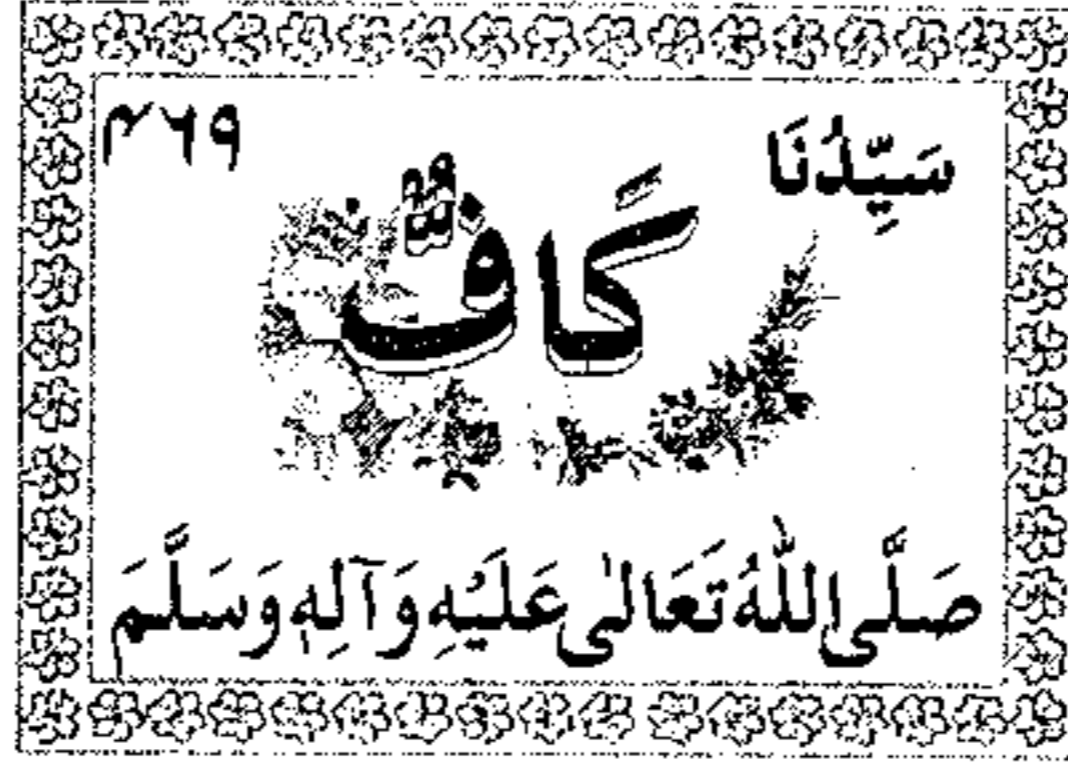 سَيِّدُنَا ۴۶۹
كَافٌّ
صَلَّى اللّٰهُ تَعَالٰى عَلَيْهِ وَآلِهٖ وَسَلَّمَ